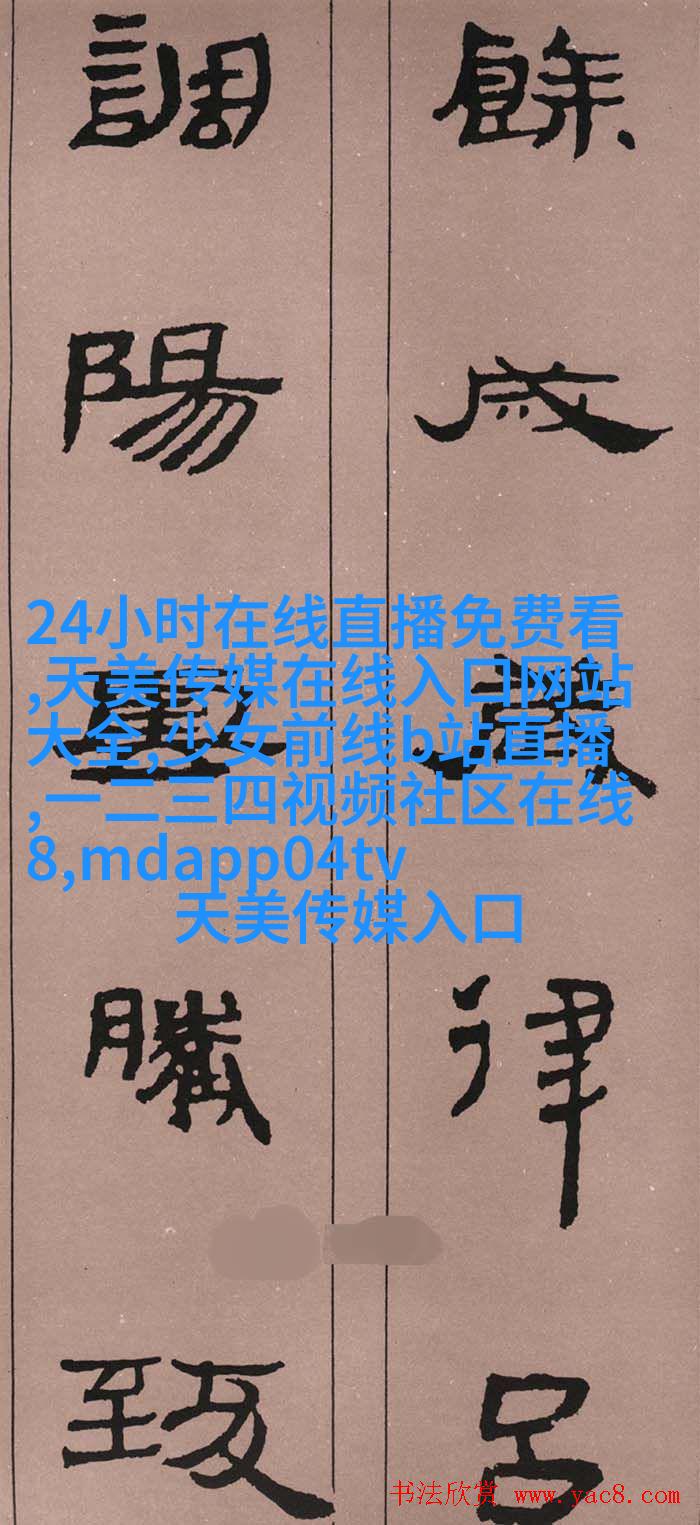 餘成歲律呂
調陽雲騰致
24小时在线直播免费看
,天美传媒在线入口网站
大全,少女前线b站直播
,一二三四视频社区在线
8,mdapp04tv
天美传媒入口
书法欣赏 www.yac8.com